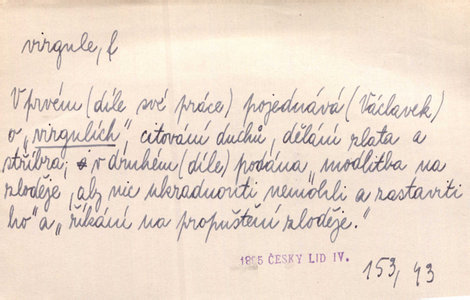 virgule, f
V prvém (díle své práce) pojednává (Václavek)
o „virgulích" citování duchů, dělání zlata a
stříbra; v druhém (díle) podána „modlitba na
zloděje, aby nic ukradnouti nemohli a zastaviti
ho" a „říkání na propuštění zloděje."
1895 ČESKÝ LID IV.
153, 43